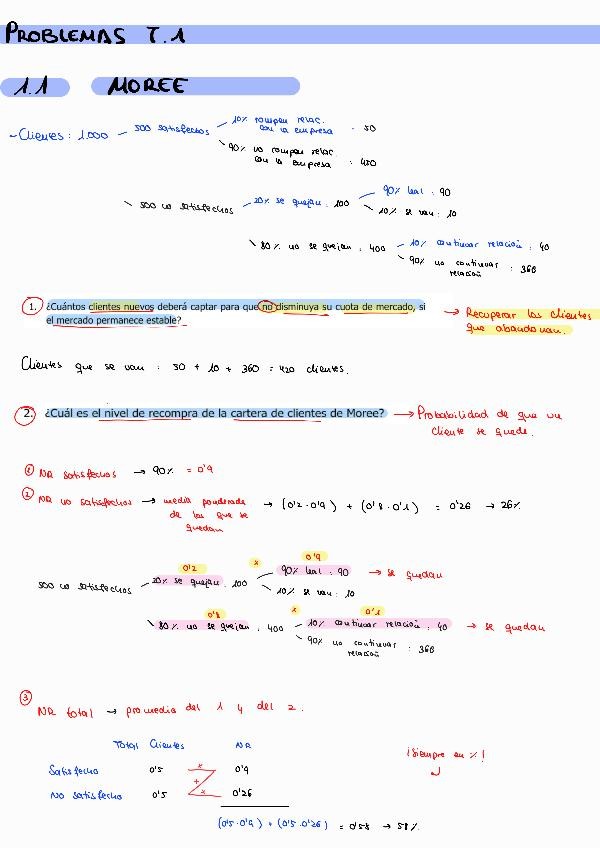 PROBLEMAS T.1
1.1 MOREE
- Clientes: 1.000 - 500 satisfechos
10% rompen relac. con la empresa . 50
90% no rompen relac. con la empresa : 450
500 no satisfechos
20% se quejan : 100
90% leal : 90
10% se van : 10
80% no se quejan : 400
10% continuar relación : 40
90% no continuar relación : 360
1. ¿Cuántos clientes nuevos deberá captar para que no disminuya su cuota de mercado, si
el mercado permanece estable?
→ Recuperar los clientes
que abandonan.
Clientes que se van : 50 + 10 + 360 = 420 clientes.
2. ¿Cuál es el nivel de recompra de la cartera de clientes de Moree? → Probabilidad de que un
cliente se quede.
① NR satisfechos → 90% = 0'9
② NR no satisfechos → media ponderada
de los que se
quedan
→ (0'2 · 0'9) + (0'8 · 0'1) = 0'26 → 26%
0'2 x 0'9
500 no satisfechos
20% se quejan : 100
90% leal : 90 → se quedan
10% se van : 10
0'8 x 0'1
80% no se quejan : 400
10% continuar relación : 40 → se quedan
90% no continuar
relación : 360
③ NR total → promedio del 1 y del 2.
Total Clientes NR
¡Siempre en %!
Satisfecho 0'5 x 0'9
+
No satisfecho 0'5 x 0'26
(0'5 · 0'9) + (0'5 · 0'26) = 0'58 → 58%